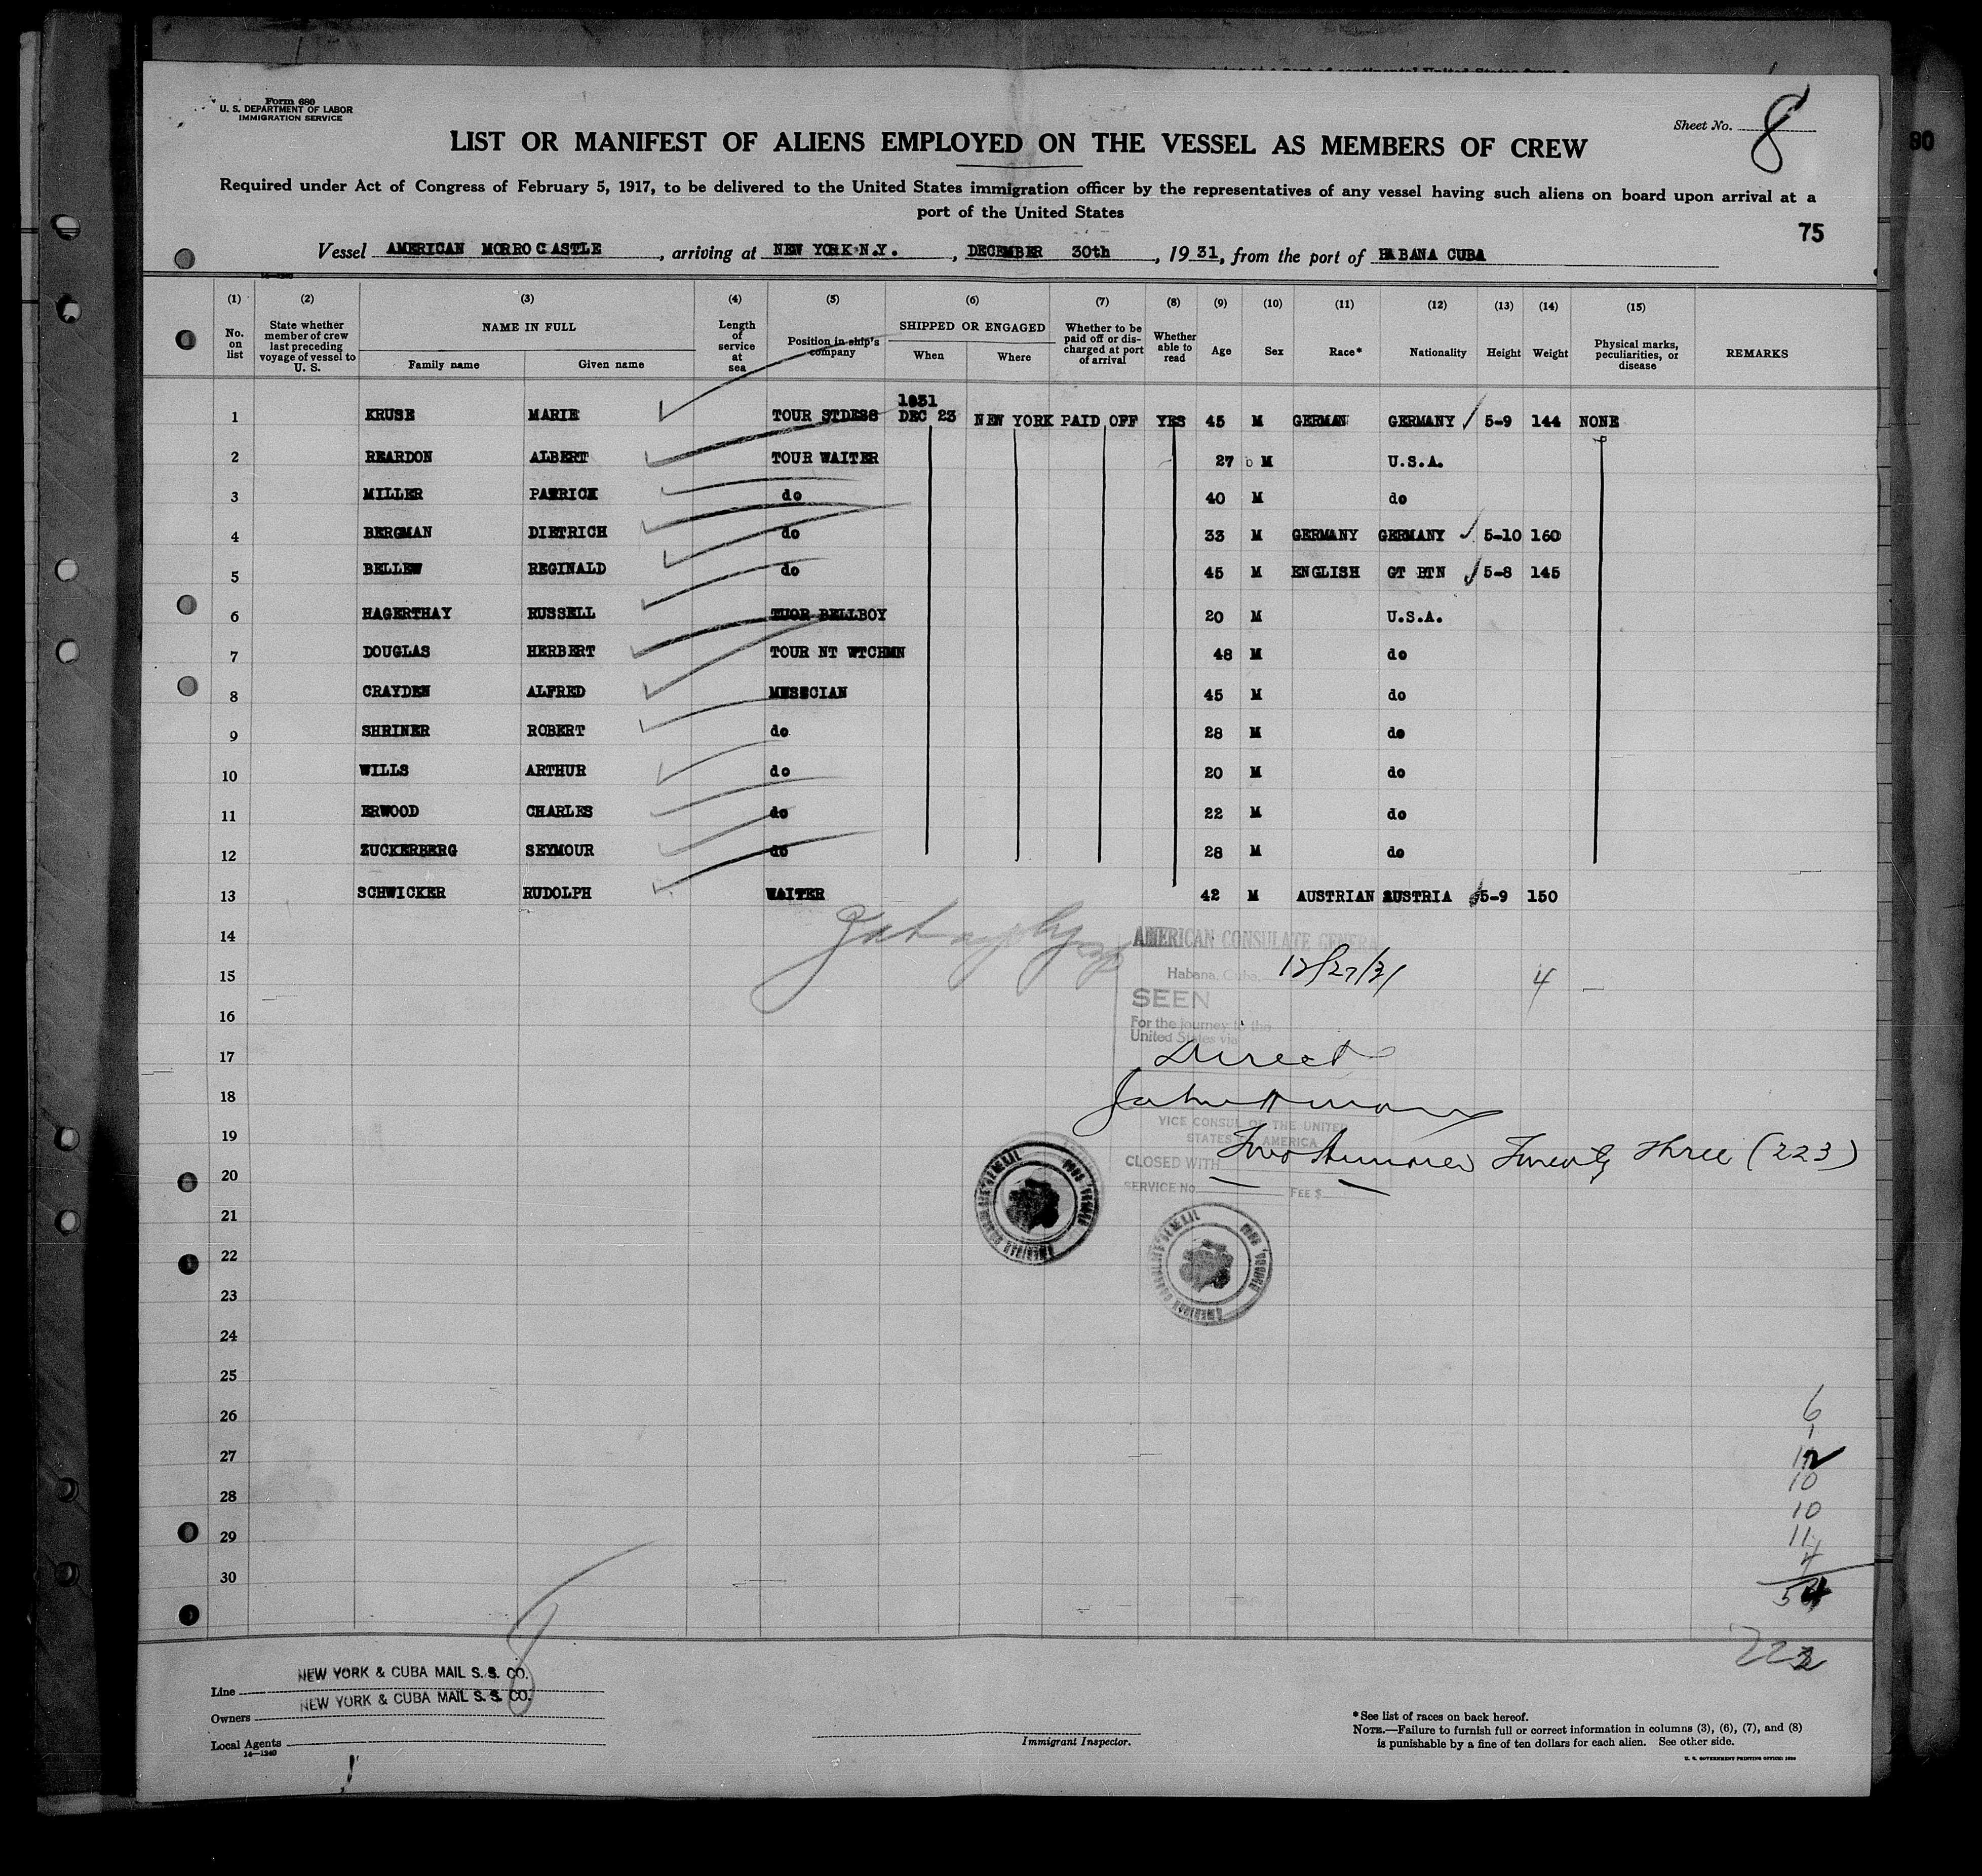 Form 680
U. S. DEPARTMENT OF LABOR
IMMIGRATION SERVICE
Sheet No. 8
LIST OR MANIFEST OF ALIENS EMPLOYED ON THE VESSEL AS MEMBERS OF CREW
Required under Act of Congress of February 5, 1917, to be delivered to the United States immigration officer by the representatives of any vessel having such aliens on board upon arrival at a
port of the United States
75
90
Vessel AMERICAN MORRO CASTLE, arriving at NEW YORK N.Y., DECEMBER 30th, 1931, from the port of HABANA CUBA
14-1240
(1) (2) (3) (4) (5) (6) (7) (8) (9) (10) (11) (12) (13) (14) (15)
No. on list State whether member of crew last preceding voyage of vessel to U. S. NAME IN FULL Family name Given name Length of service at sea Position in ship's company SHIPPED OR ENGAGED When Where Whether to be paid off or discharged at port of arrival Whether able to read Age Sex Race* Nationality Height Weight Physical marks, peculiarities, or disease REMARKS
1931
1 KRUSE MARIE TOUR STDESS DEC 23 NEW YORK PAID OFF YES 45 M GERMAN GERMANY 5-9 144 NONE
2 REARDON ALBERT TOUR WAITER 27 M U.S.A.
3 MILLER PATRICK do 40 M do
4 BERGMAN DIETRICH do 33 M GERMANY GERMANY 5-10 160
5 BELLEW REGINALD do 45 M ENGLISH GT BTN 5-8 145
6 HAGERTHAY RUSSELL TUOR BELLBOY 20 M U.S.A.
7 DOUGLAS HERBERT TOUR NT WTCHMN 48 M do
8 CRAYDEN ALFRED MUSICIAN 45 M do
9 SHRINER ROBERT do 28 M do
10 WILLS ARTHUR do 20 M do
11 ERWOOD CHARLES do 22 M do
12 ZUCKERBERG SEYMOUR do 28 M do
13 SCHWICKER RUDOLPH WAITER 42 M AUSTRIAN AUSTRIA 5-9 150
14
AMERICAN CONSULATE GENERAL
15 Habana, Cuba, 12/27/31 4
SEEN
16 For the journey to the
United States via
17 Direct
18
VICE CONSUL OF THE UNITED
STATES OF AMERICA
19 Two Hundred Twenty Three (223)
CLOSED WITH
20 SERVICE No. FEE $
21
22
23
24
25
26
27
28
29
30
6
1
12
10
10
11
4
54
223
8
Line NEW YORK & CUBA MAIL S. S. CO.
Owners NEW YORK & CUBA MAIL S. S. CO.
Local Agents
14-1240
Immigrant Inspector.
*See list of races on back hereof.
NOTE.—Failure to furnish full or correct information in columns (3), (6), (7), and (8)
is punishable by a fine of ten dollars for each alien. See other side.